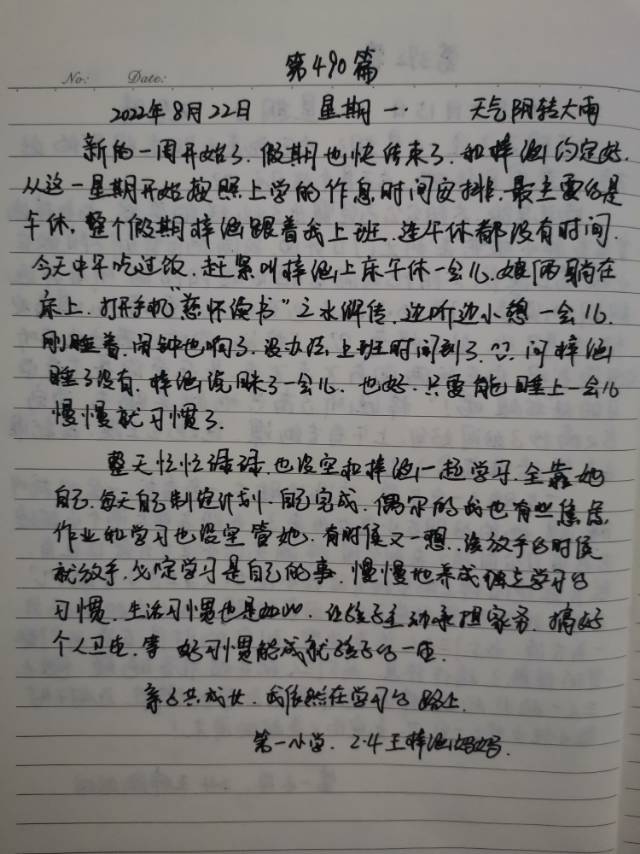 第490篇
No: Date:
2022年8月22日 星期一. 天气阴转大雨
新的一周开始了.假期也快结束了.和梓涵约定好.
从这一星期开始按照上学的作息时间安排.最主要的是
午休.整个假期梓涵跟着我上班.连午休都没有时间.
今天中午吃过饭.赶紧叫梓涵上床午休一会儿.娘俩躺在
床上.打开手机“慈怀读书”之水浒传.边听边小憩一会儿.
刚睡着.闹钟也响了.没办法.上班时间到了.问梓涵
睡了没有.梓涵说眯了一会儿.也好.只要能睡上一会儿
慢慢就习惯了.
整天忙忙碌碌.也没空和梓涵一起学习.全靠她
自己.每天自己制定计划.自己完成.偶尔的我也有些焦虑.
作业和学习也没空管她.有时候又一想.该放手的时候
就放手.必定学习是自己的事.慢慢地养成独立学习的
习惯.生活习惯也是如此.让孩子主动承担家务.搞好
个人卫生.等 好习惯能成就孩子的一生.
亲子共成长.我依然在学习的路上.
第一小学.2.4王梓涵妈妈.